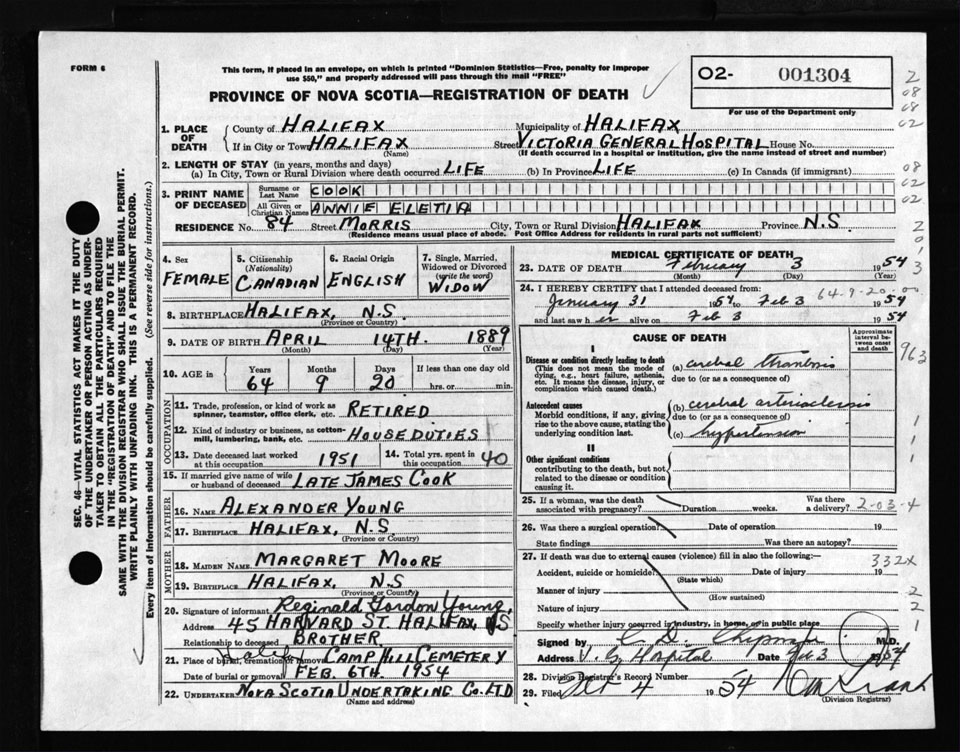 FORM 6
This form, if placed in an envelope, on which is printed "Dominion Statistics—Free, penalty for improper
use $50," and properly addressed will pass through the mail "FREE"
O2- 001304
For use of the Department only
PROVINCE OF NOVA SCOTIA—REGISTRATION OF DEATH
2
08
08
02
08
02
02
2
0
1
3
SEC. 46—VITAL STATISTICS ACT MAKES IT THE DUTY
OF THE UNDERTAKER OR PERSON ACTING AS UNDER-
TAKER TO OBTAIN ALL THE PARTICULARS REQUIRED
IN THE "REGISTRATION OF DEATH" AND TO FILE THE
SAME WITH THE DIVISION REGISTRAR WHO SHALL ISSUE THE BURIAL PERMIT.
WRITE PLAINLY WITH UNFADING INK. THIS IS A PERMANENT RECORD.
Every item of information should be carefully supplied. (See reverse side for instructions.)
1. PLACE OF DEATH
County of HALIFAX Municipality of HALIFAX
If in City or Town HALIFAX (Name) Street VICTORIA GENERAL HOSPITAL House No.
(If death occurred in a hospital or institution, give the name instead of street and number)
2. LENGTH OF STAY (in years, months and days)
(a) In City, Town or Rural Division where death occurred LIFE (b) In Province LIFE (c) In Canada (if immigrant)
3. PRINT NAME OF DECEASED
Surname or Last Name COOK
All Given or Christian Names ANNIE ELETIA
RESIDENCE No. 84 Street MORRIS City, Town or Rural Division HALIFAX Province N.S.
(Residence means usual place of abode. Post Office Address for residents in rural parts not sufficient)
4. Sex FEMALE
5. Citizenship (Nationality) CANADIAN
6. Racial Origin ENGLISH
7. Single, Married, Widowed or Divorced (write the word) WIDOW
8. BIRTHPLACE HALIFAX, N.S.
(Province or Country)
9. DATE OF BIRTH APRIL 14TH. 1889
(Month) (Day) (Year)
10. AGE in Years 64 Months 9 Days 20 If less than one day hrs. or min.
OCCUPATION
11. Trade, profession, or kind of work as spinner, teamster, office clerk, etc. RETIRED
12. Kind of industry or business, as cotton-mill, lumbering, bank, etc. HOUSE DUTIES
13. Date deceased last worked at this occupation 1951 14. Total yrs. spent in this occupation 40
15. If married give name of wife or husband of deceased LATE JAMES COOK
FATHER
16. NAME ALEXANDER YOUNG
17. BIRTHPLACE HALIFAX, N.S.
(Province or Country)
MOTHER
18. MAIDEN NAME MARGARET MOORE
19. BIRTHPLACE HALIFAX, N.S
(Province or Country)
20. Signature of informant Reginald Gordon Young,
Address 45 HARVARD ST. HALIFAX, NS
Relationship to deceased BROTHER
21. Place of burial, cremation or removal Halifax CAMP HILL CEMETERY
Date of burial or removal FEB. 6TH. 1954
22. UNDERTAKER NOVA SCOTIA UNDERTAKING CO. LTD
(Name and address)
MEDICAL CERTIFICATE OF DEATH
23. DATE OF DEATH February 3 1954
(Month) (Day) (Year)
24. I HEREBY CERTIFY that I attended deceased from: 64-9-20-00
January 31 1954 to Feb 3 1954
and last saw her alive on Feb 3 1954
CAUSE OF DEATH
Approximate interval between onset and death
963
I
Disease or condition directly leading to death
(This does not mean the mode of dying, e.g., heart failure, asthenia, etc. It means the disease, injury, or complication which caused death.)
(a) cerebral thrombosis
due to (or as a consequence of)
Antecedent causes
Morbid conditions, if any, giving rise to the above cause, stating the underlying condition last.
(b) cerebral arteriosclerosis
due to (or as a consequence of)
(c) hypertension
1
1
1
II
Other significant conditions
contributing to the death, but not related to the disease or condition causing it.
25. If a woman, was the death associated with pregnancy? Duration weeks. Was there a delivery? 2-03-4
26. Was there a surgical operation? Date of operation 19
State findings Was there an autopsy?
27. If death was due to external causes (violence) fill in also the following:—
332X
Accident, suicide or homicide? Date of injury 19
(State which)
Manner of injury
(How sustained)
Nature of injury
2
2
1
Specify whether injury occurred in industry, in home, or in public place
Signed by C. D. Chipman M.D.
Address V. G. Hospital Date Feb 3 1954
28. Division Registrar's Record Number
29. Filed 4 1954
(Division Registrar)